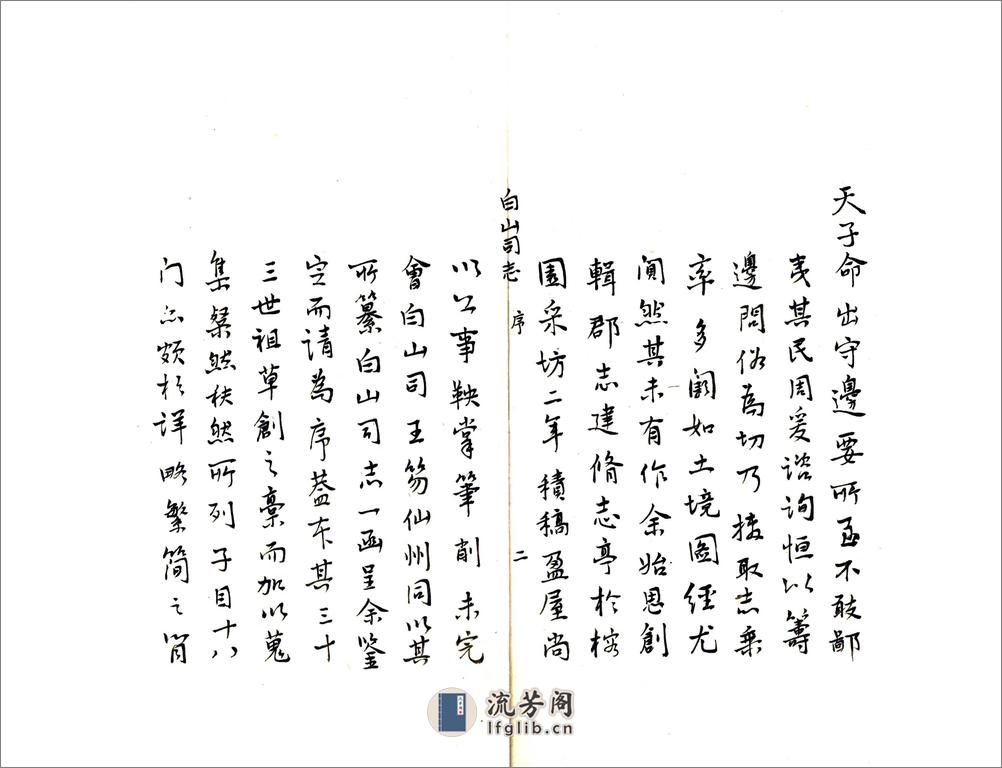 天子命出守邊要所至不敢鄙
夷其民周爰諮詢恒以籌
邊問俗為切乃披取志乘
率多闕如土境圖經尤
闃然其未有作余始思創
輯郡志建脩志亭於榕
園采坊二年積稿盈屋尚
白山司志 序 二
以公事鞅掌筆削未完
會白山司王笏仙州同以其
所纂白山司志一函呈余鑒
定而請為序蓋本其三十
三世祖草創之藁而加以蒐
集粲然秩然所列子目十八
门亦頗於詳略繁简之间
流芳阁
lfglib.cn